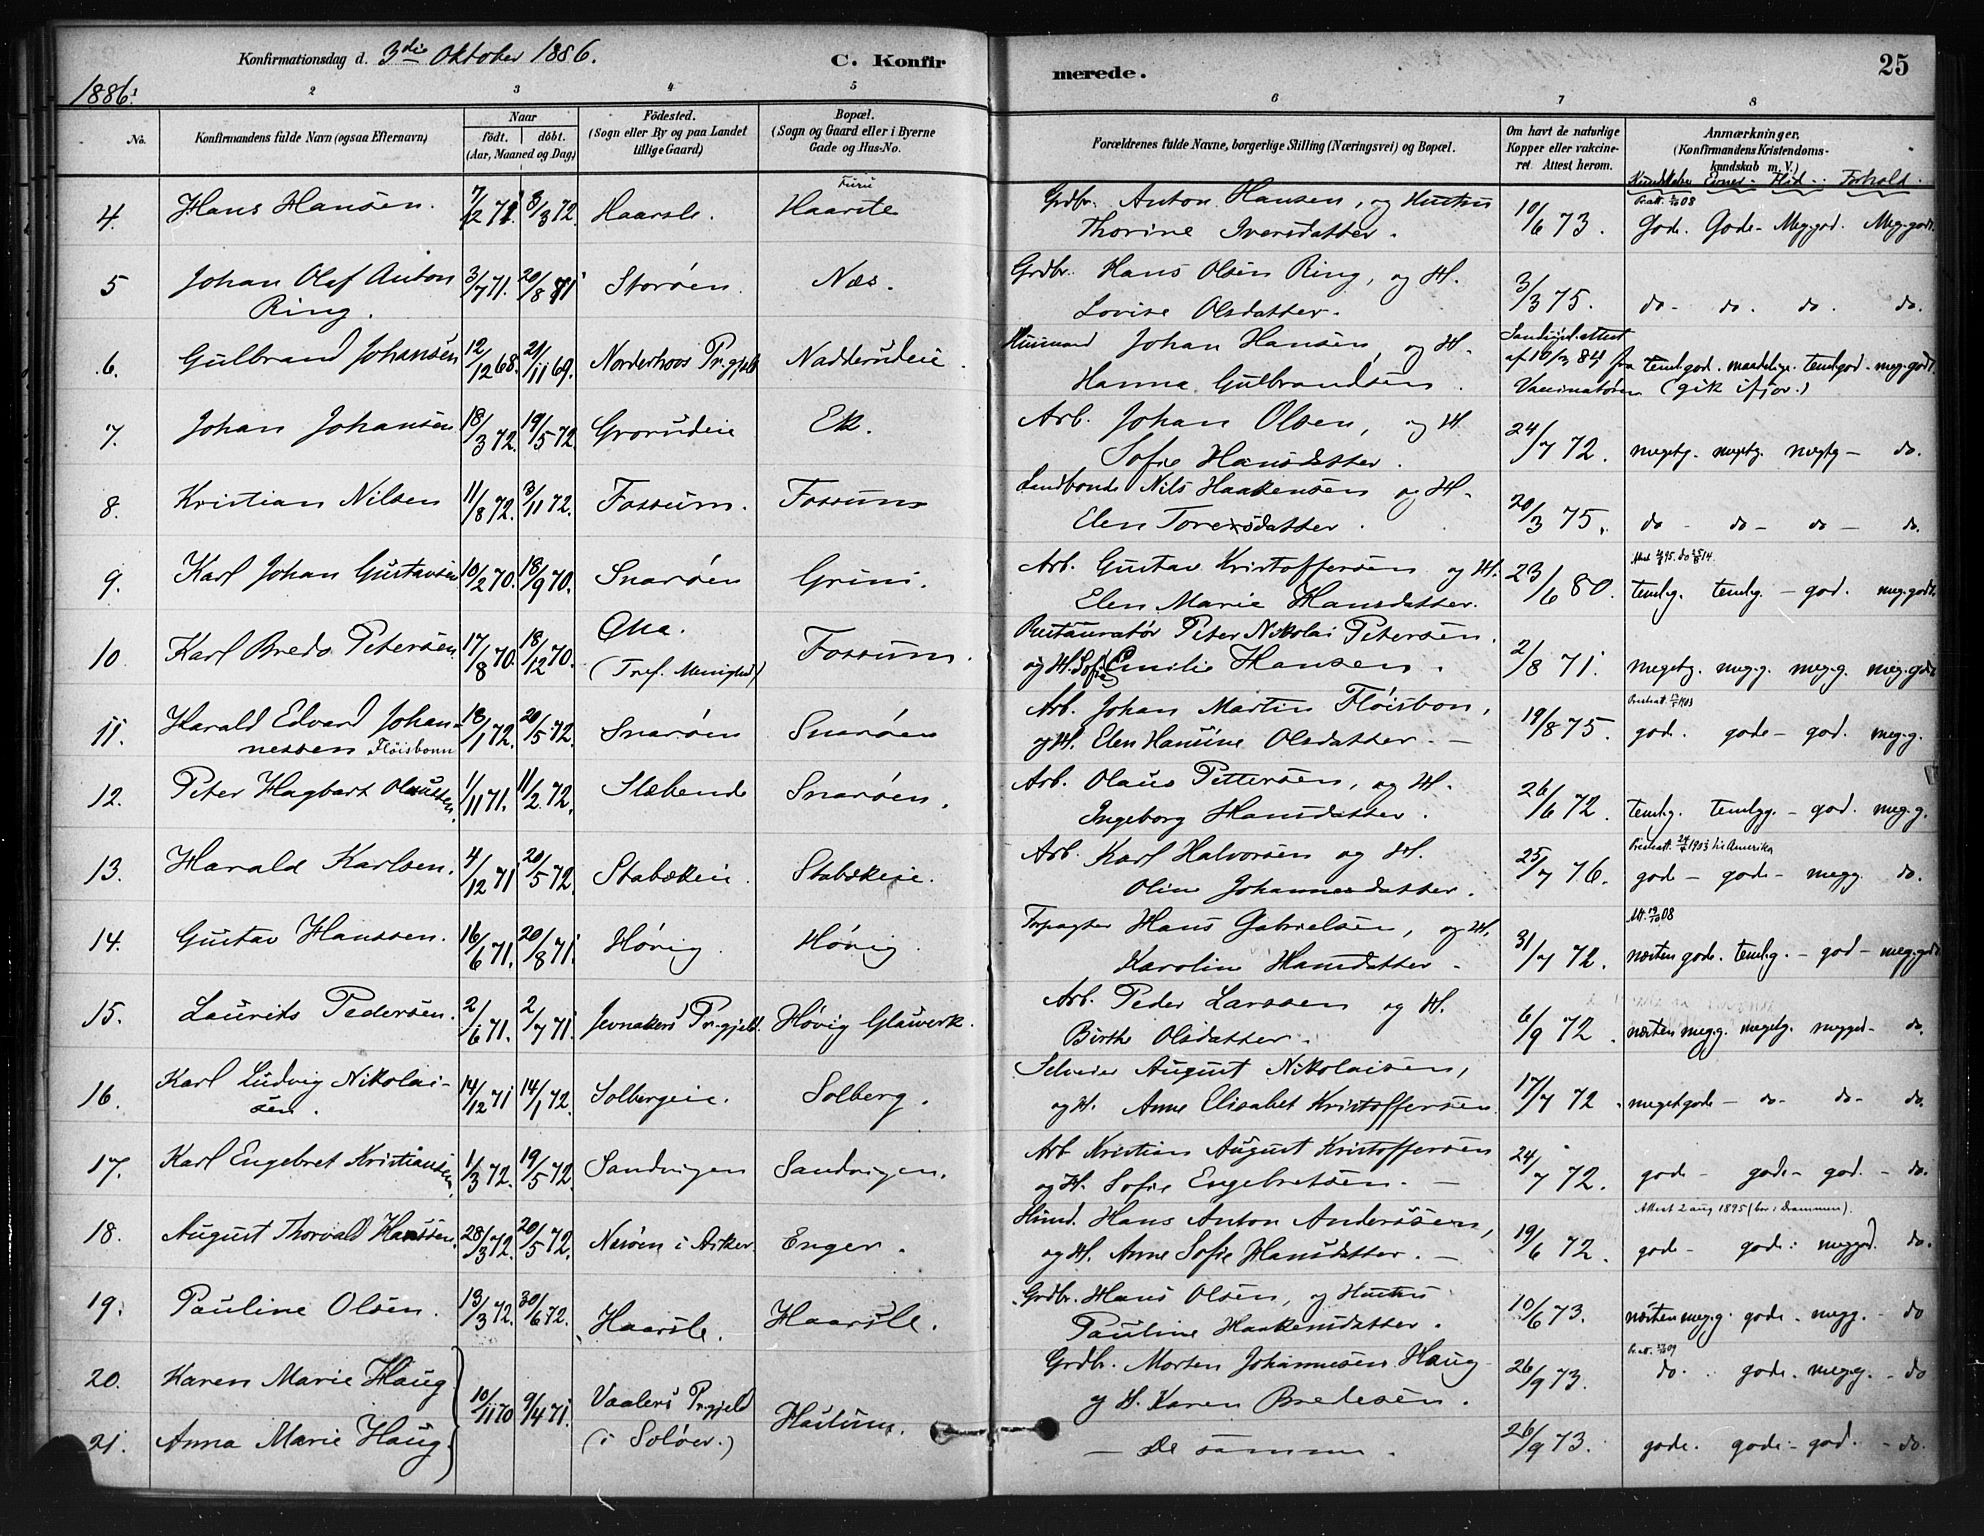 Konfirmationsdag d. 3die Oktober 1886. C. Konfirmerede. 25
1886.
2 3 4 5 6 7 8
No. Konfirmandens fulde Navn (ogsaa Efternavn) Naar født. døbt. (Aar, Maaned og Dag) Fødested. (Sogn eller By og paa Landet tillige Gaard) Bopæl. (Sogn og Gaard eller i Byerne Gade og Hus-No. Forældrenes fulde Navne, borgerlige Stilling (Næringsvei) og Bopæl. Om havt de naturlige Kopper eller vakcineret. Attest herom. Anmærkninger. (Konfirmandens Kristendomskundskab m. V.)
Kundskaber Evner Flid Forhold.
4 Hans Hansen. 7/12 71. 3/3 72 Haarsle. Furu Haarsle Grdbr. Anton Hansen, og Hustru
Thorine Iversdatter. 10/6 73. Gode. Gode - Meg.god. Meg.godt.
5 Johan Olaf Anton 3/7 71. 20/8 71 Storøen. Næs. Grdbr. Hans Olsen Ring, og H.
Ring. Lovise Olsdatter. 3/3 75. do - do. do. do.
6. Gulbrand Johansen 12/12 68. 21/11 69. Norderhovs Pr.gjeld Nadderudeie. Husmand Johan Hansen, og H.
Hanna Gulbrandsen. temligod. maadelige. temlgod - meg.godt.
Vaccinatøren (gik ifjor.)
7. Johan Johansen 18/3 72. 19/5 72 Grorudeie Ek. Arb. Johan Olsen, og H
Sofie Hansdatter. 24/7 72. megetg. megetg. megtg - do.
8. Kristian Nilsen 11/8 72. 3/11 72. Fossum. Fossum Landbonde Nils Haakensen og H.
Elen Toresdatter. 20/3 75. do - do - do - do.
9. Karl Johan Gustavsen 10/2 70. 18/9 70. Snarøen Grini. Arb. Gustav Kristoffersen og H.
Elen Marie Hansdatter. 23/6 80. temlig. temlig. - god. meg.godt.
10 Karl Bredo Petersen 17/8 70. 18/12 70. (Tref. Menighed) Fossum. Restauratør Peter Nikolai Petersen.
og H. Sofie Emilie Hansen. 2/8 71 megetg. meg.g. meg.g. meg.godt
11. Harald Edvard Johan- 18/1 72. 20/5 72. Snarøen Snarøen Arb. Johan Martin Fløisbon,
nessen Fløisbonn og H. Elen Hanine Olsdatter. - 19/8 75. god. gode - god. meg.g.
12. Peter Hagbart Olaussen 1/11 71. 11/2 72. Slæbende Snarøen. Arb. Olaus Pettersen, og H.
Ingeborg Hansdatter. 26/6 72. temlig. temligg. - god. meg.g.
13. Harald Karlsen. 4/12 71 20/5 72. Stabækeie. Stabækeie. Arb. Karl Halvorsen og H.
Oline Johannesdatter. 25/7 76. Prestatt. 1903 til Amerika
gode - gode - megg. do.
14. Gustav Hanssen. 16/6 71. 20/8 71. Høvig. Høvig. Forpagter Hans Gabrielsen, og H.
Karoline Hansdatter - 31/7 72. næsten gode. temlig. - god - meg.godt
15. Laurits Pedersen. 2/6 71. 2/7 71. Jevnakers Pr-gjeld. Høvig Glasverk. Arb. Peder Larssen og H.
Birthe Olsdatter. 6/9 72. næsten meg.g. megetg. meggod - do.
16. Karl Ludvig Nikolai- 14/12 71 14/1 72. Solbergeie. Solberg. Selveier August Nikolaisen,
sen. og H. Anne Elisabet Kristoffersen 17/7 72. meget gode - do - do - do.
17. Karl Engebret Kristiansen. 1/3 72. 19/5 72. Sandvigen Sandvigen. Arb Kristian August Kristoffersen
og H. Sofie Engebretsen. - 24/7 72. gode - gode - god. - do.
18. August Thorvald Hanssen. 28/3 72. 20/5 72. Nesøen i Asker. Enger. Husmd. Hans Anton Anderssen,
og H. Anne Sofie Hansdatter. - 19/6 72. Attest 2 aug 1895 (bor i Drammen).
gode - gode: meggod. do.
19. Pauline Olsen. 13/3 72. 30/6 72. Haarsle. Haarsle. Grdbr. Hans Olsen, og Hustru
Pauline Haakensdatter. 10/6 73. næsten meg.g. gode. megg. - do
20. Karen Marie Haug 10/11 70 9/4 71. Vaalers Pr.gjeld Haslum. Grdbr. Morten Johannesen Haug
og H. Karen Bredesen. 26/9 73. do. gode. meg.g. - do
21. Anna Marie Haug. (i Soløer.) - De samme. 26/9 73. gode. gode - god. - do.